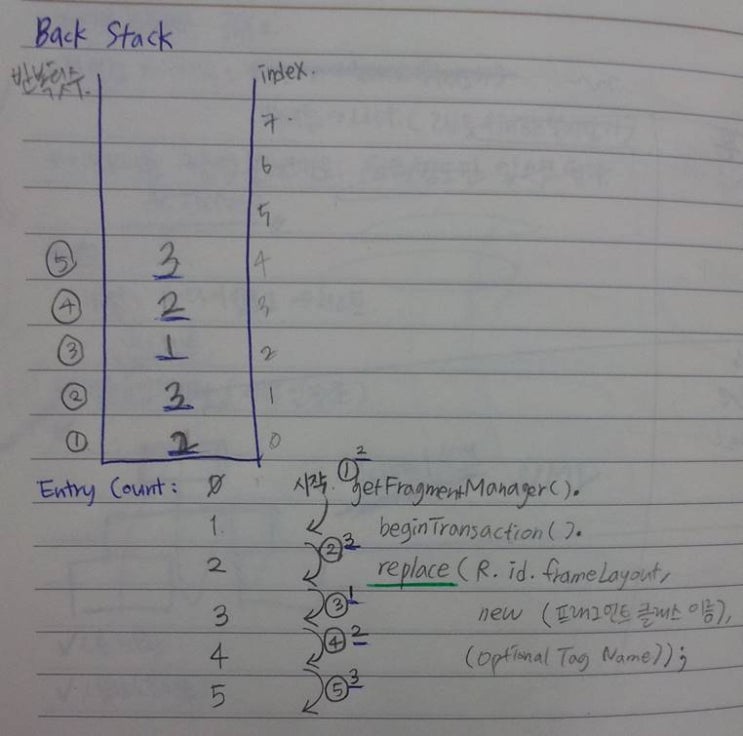 Back Stack
반복횟수. index.
7.
6
5
⑤ 3 4
④ 2 3
③ 1 2
② 3 1
① 2 0
Entry Count: 0 시작. ① 2 getFragmentManager().
1. beginTransaction().
2 ② 3 replace (R. id. frameLayout,
3 ③ 1 new (프래그먼트 클래스 이름),
4 ④ 2 (Optional Tag Name));
5 ⑤ 3